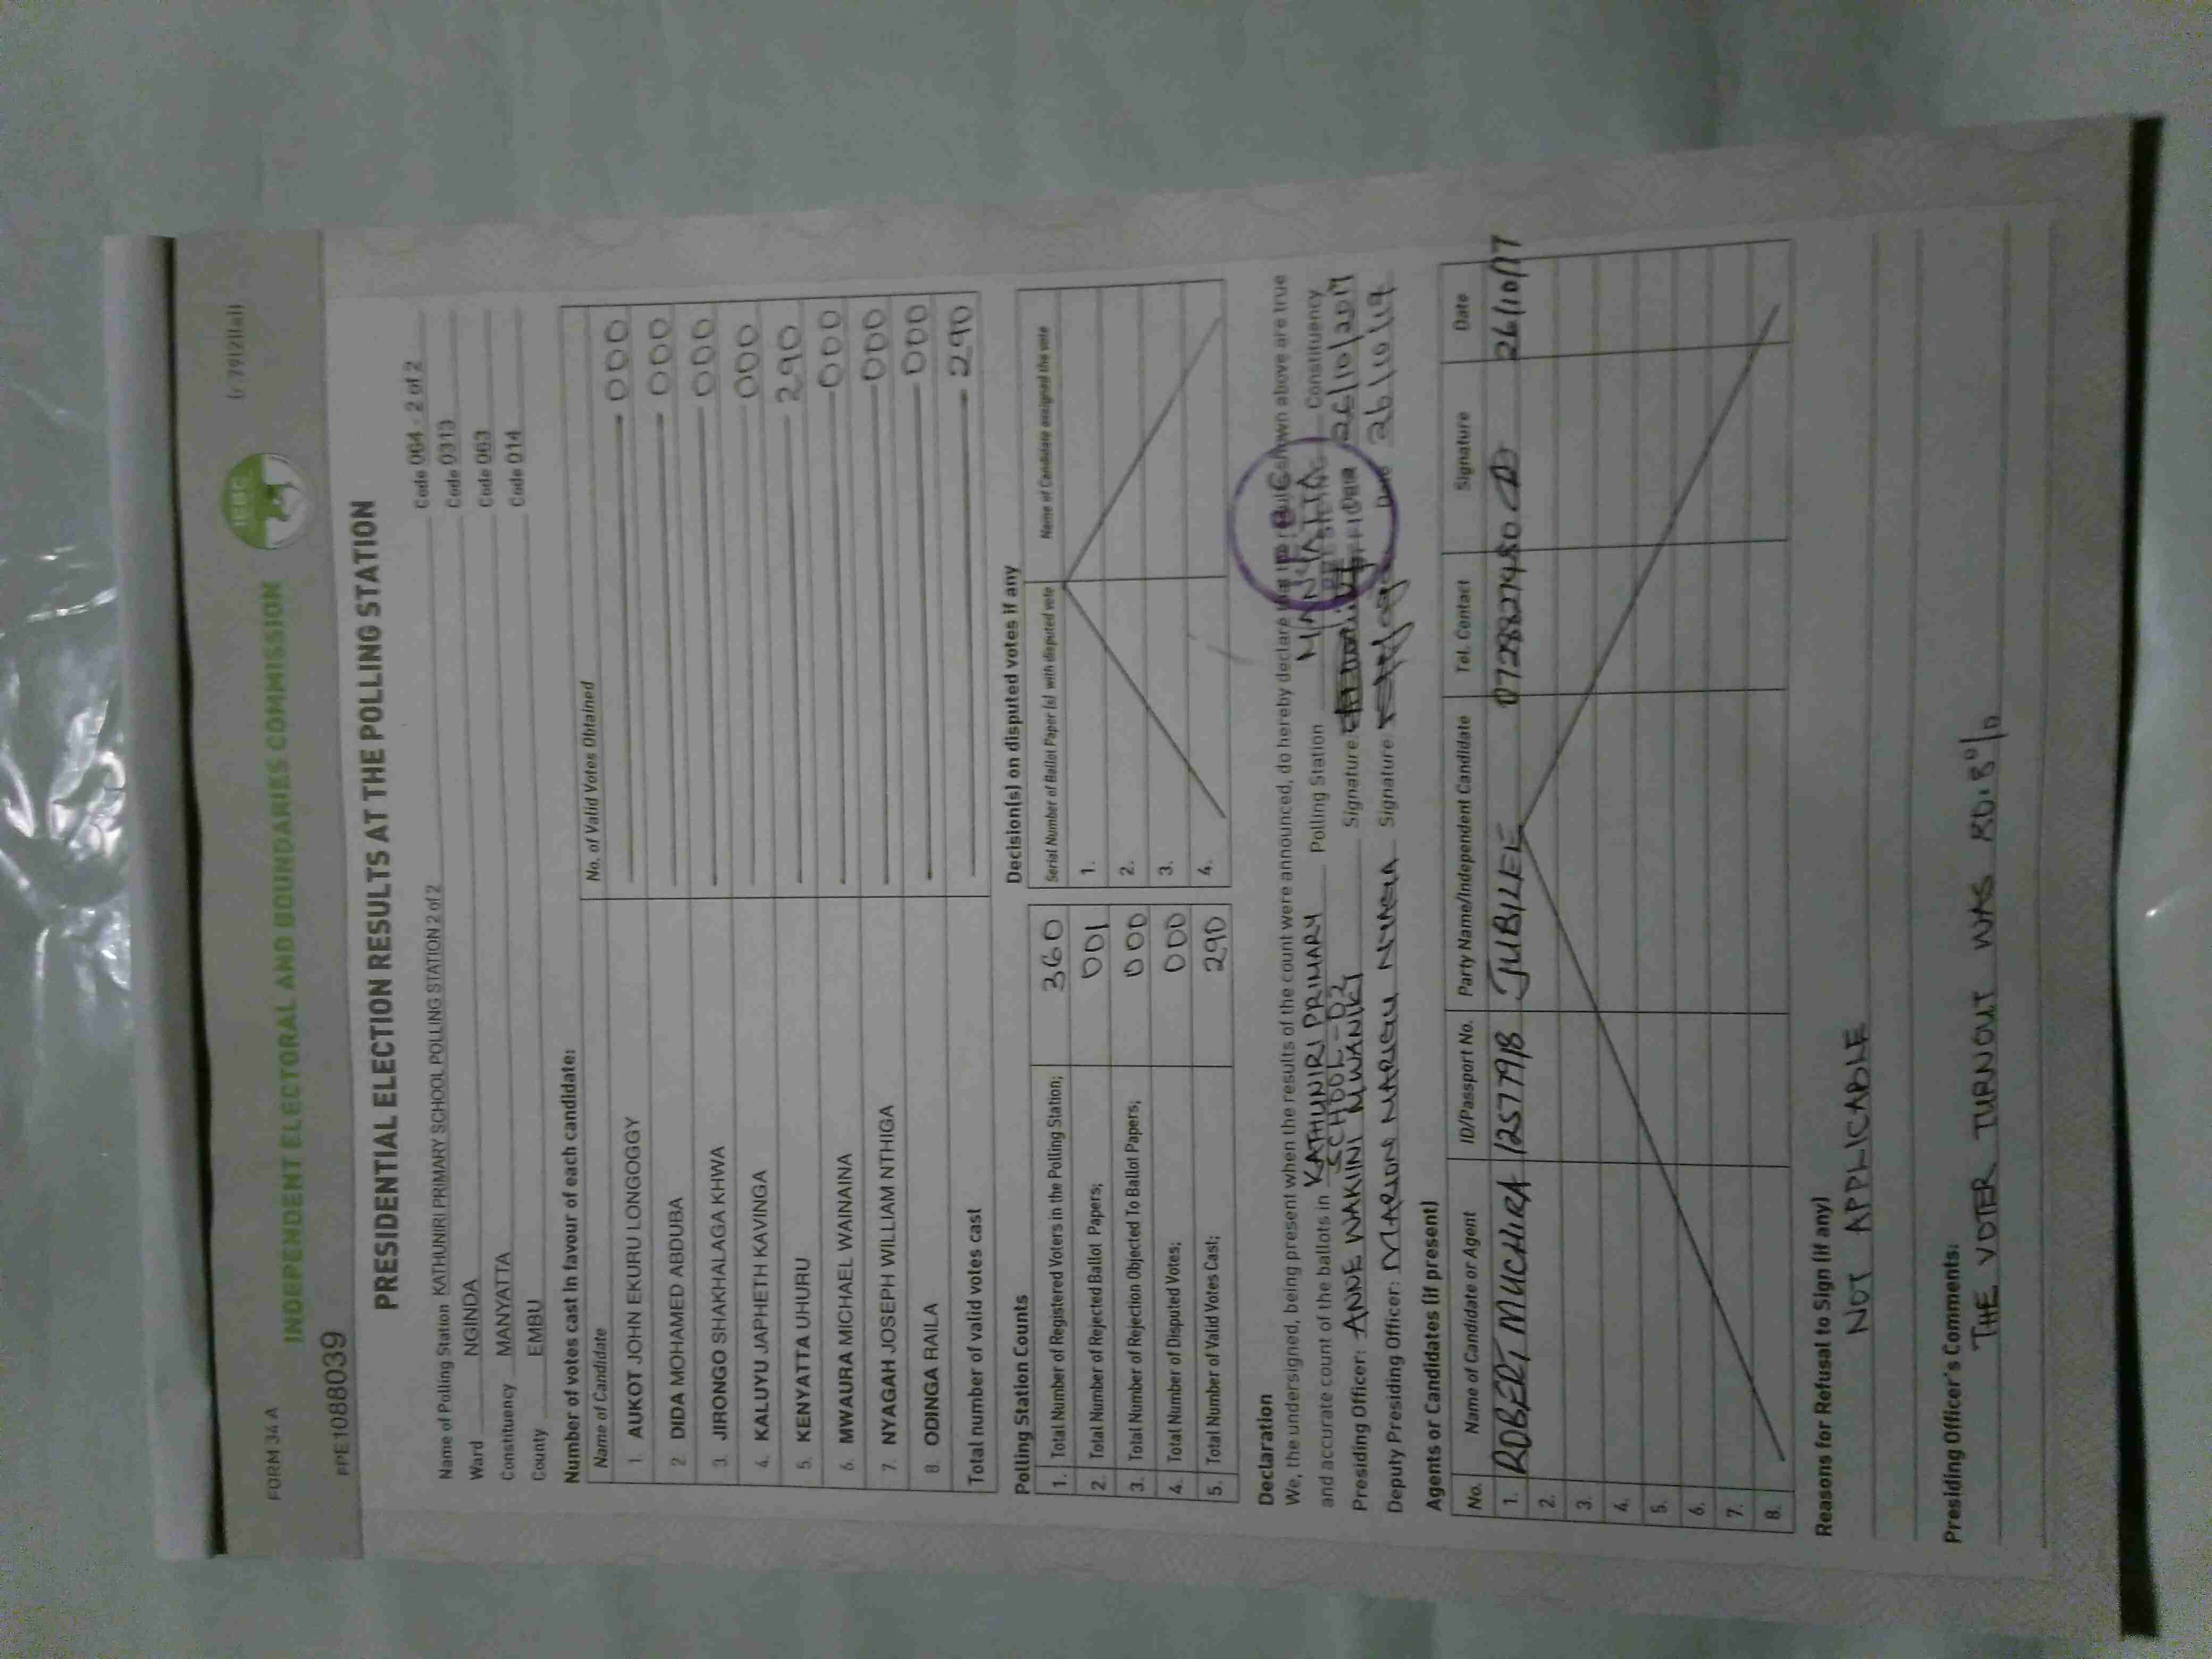 FORM 34 A
INDEPENDENT ELECTORAL AND BOUNDARIES COMMISSION
IEBC
PPE1088039
PRESIDENTIAL ELECTION RESULTS AT THE POLLING STATION
Name of Polling Station KATHUNIRI PRIMARY SCHOOL POLLING STATION 2 of 2 Code 064 - 2 of 2
Ward NGINDA Code 0313
Constituency MANYATTA Code 063
County EMBU Code 014
Number of votes cast in favour of each candidate:
Name of Candidate No. of Valid Votes Obtained
1. AUKOT JOHN EKURU LONGOGGY 000
2. DIDA MOHAMED ABDUBA 000
3. JIRONGO SHAKHALAGA KHWA 000
4. KALUYU JAPHETH KAVINGA 000
5. KENYATTA UHURU 290
6. MWAURA MICHAEL WAINAINA 000
7. NYAGAH JOSEPH WILLIAM NTHIGA 000
8. ODINGA RAILA 000
Total number of valid votes cast 290
Polling Station Counts
1. Total Number of Registered Voters in the Polling Station; 360
2. Total Number of Rejected Ballot Papers; 001
3. Total Number of Rejection Objected To Ballot Papers; 000
4. Total Number of Disputed Votes; 000
5. Total Number of Valid Votes Cast; 290
Decision(s) on disputed votes if any
Serial Number of Ballot Paper (s) with disputed vote Name of Candidate assigned the vote
1.
2.
3.
4.
Declaration
We, the undersigned, being present when the results of the count were announced, do hereby declare that the results shown above are true
and accurate count of the ballots in KATHUNIRI PRIMARY SCHOOL - 02 Polling Station MANYATTA Constituency
Presiding Officer: ANNE WAKINI MWANIKI Signature Date 26/10/2017
Deputy Presiding Officer: MARION Signature Date 26/10/17
Agents or Candidates (if present)
No. Name of Candidate or Agent ID/Passport No. Party Name/Independent Candidate Tel. Contact Signature Date
1. ROBERT MUCHIRA JUBILEE 26/10/17
2.
3.
4.
5.
6.
7.
8.
Reasons for Refusal to Sign (if any)
NOT APPLICABLE
Presiding Officer's Comments:
THE VOTER TURNOUT WAS 80.8%